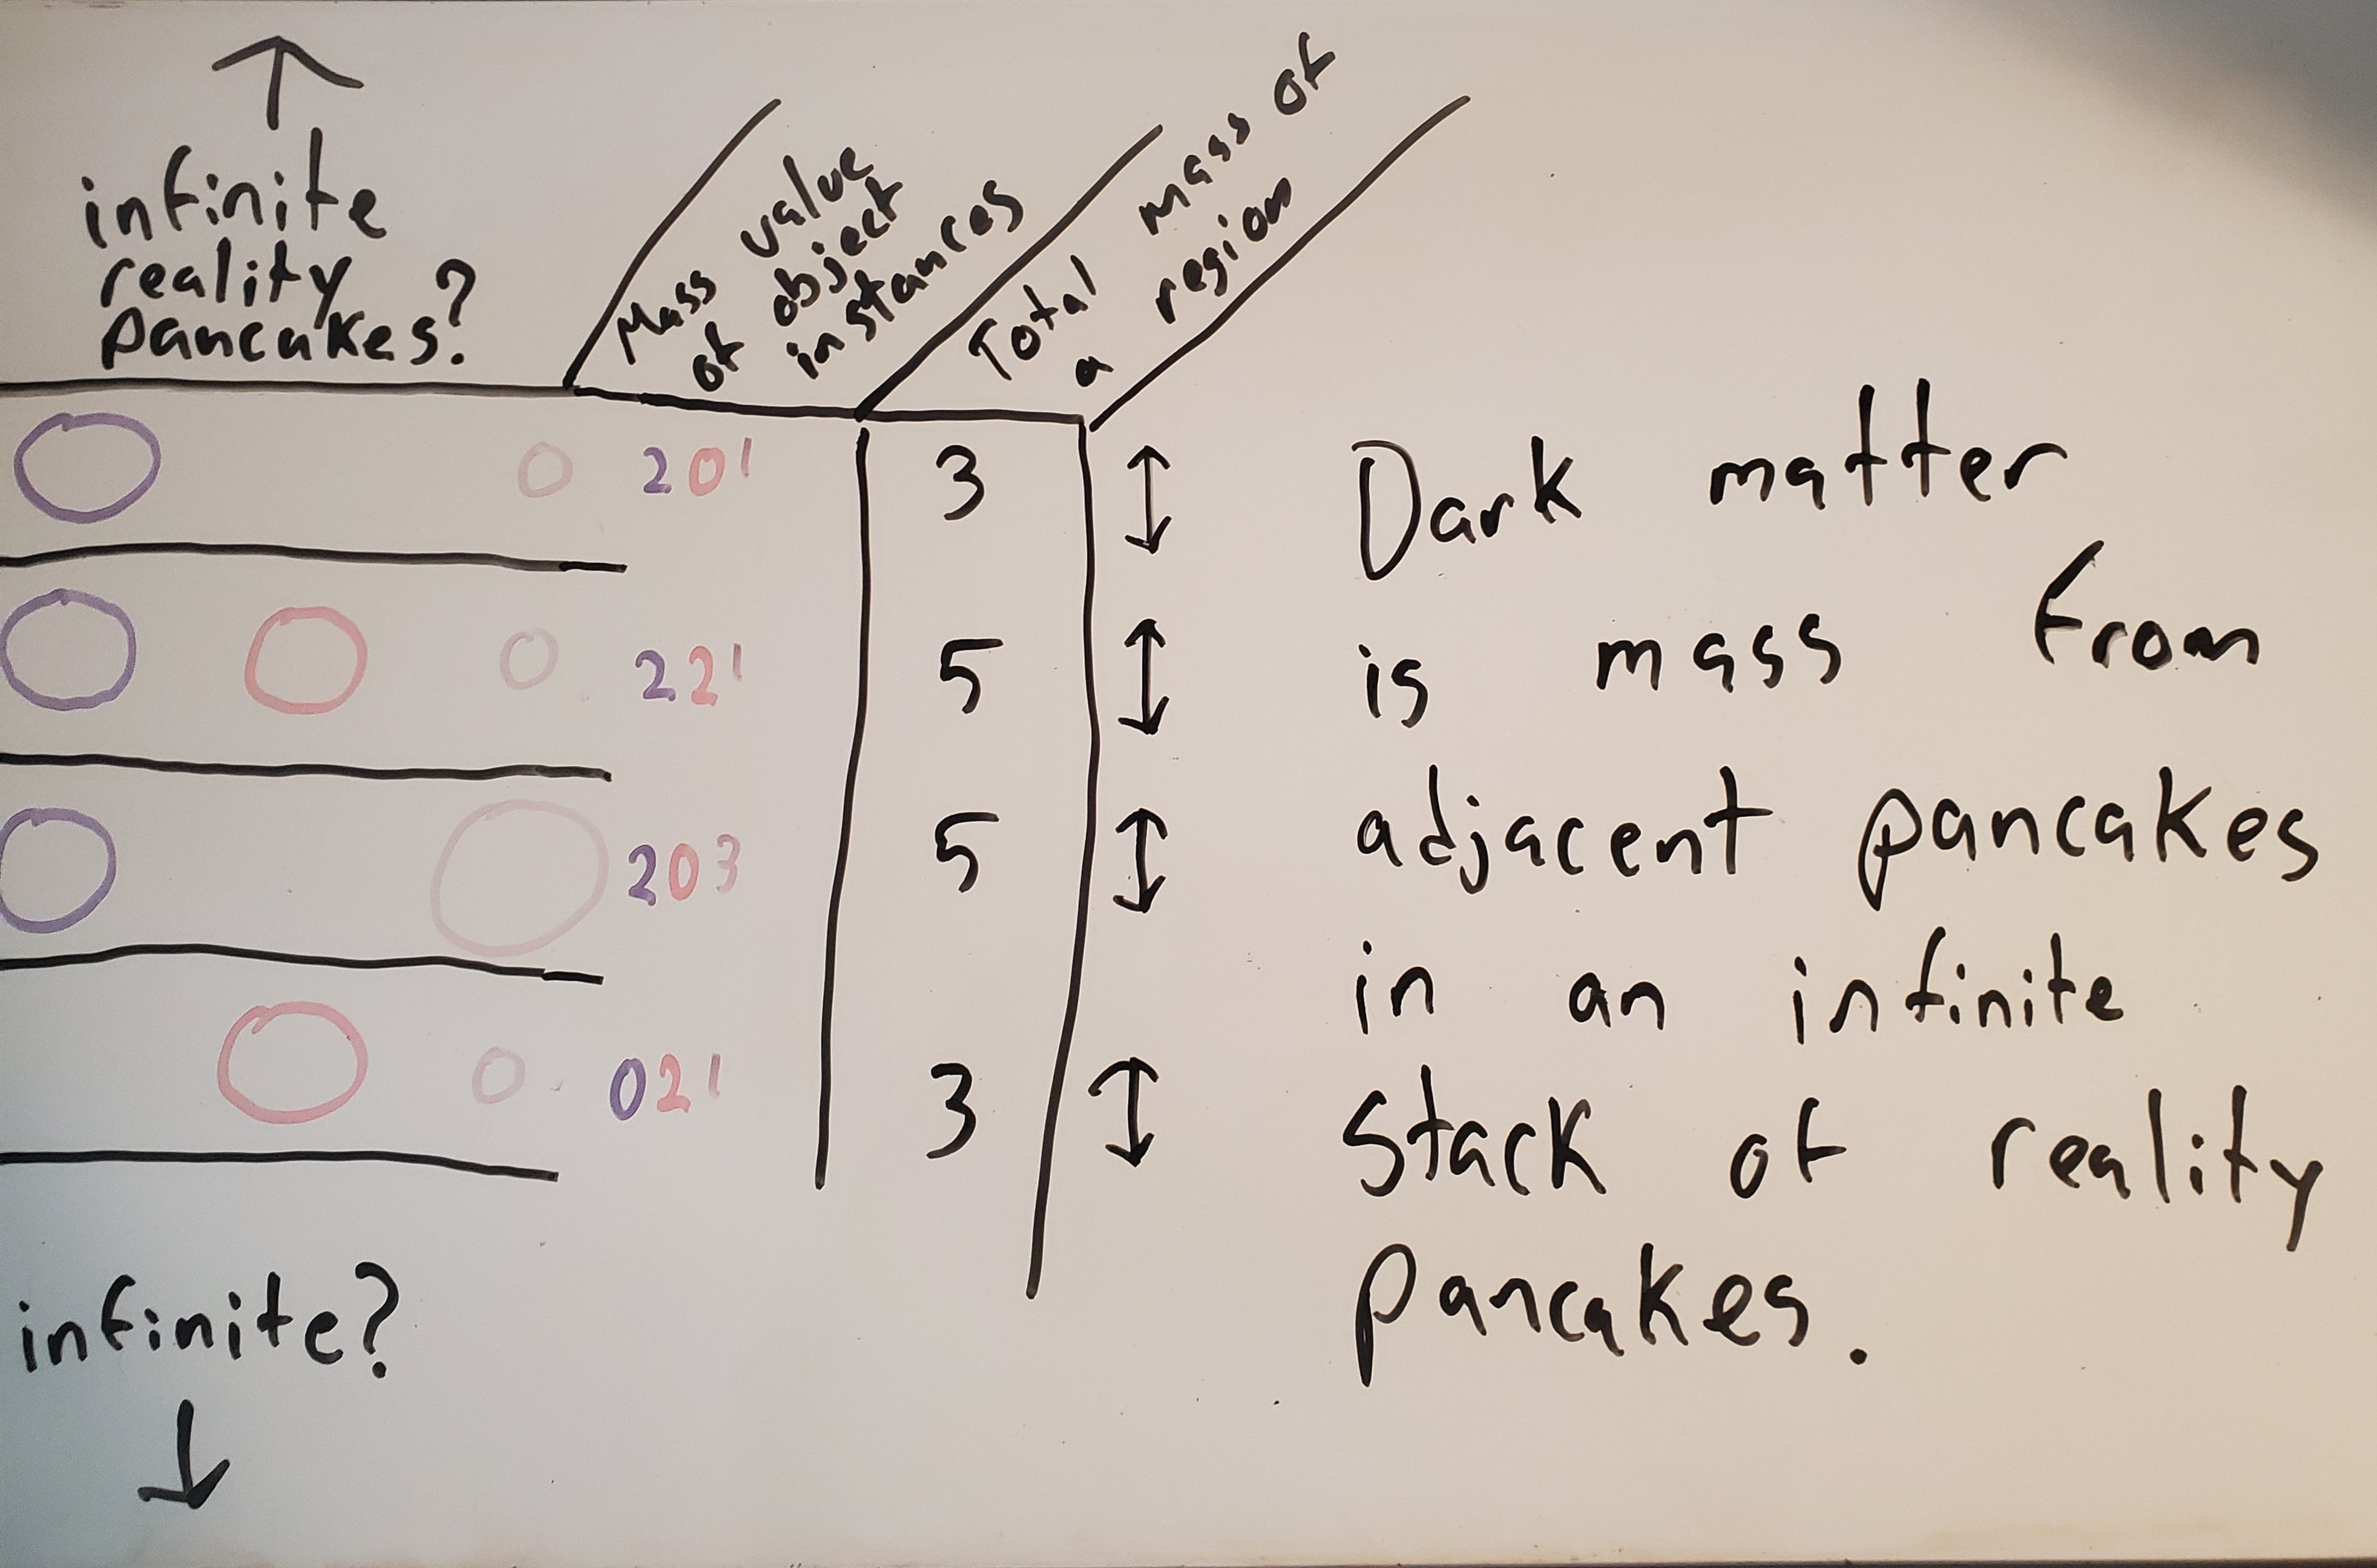 infinite
reality
pancakes?
Mass value
of object
instances
Total mass of
a region
2 0 1 3
2 2 1 5
2 0 3 5
0 2 1 3
infinite?
Dark matter
is mass from
adjacent pancakes
in an infinite
stack of reality
pancakes.